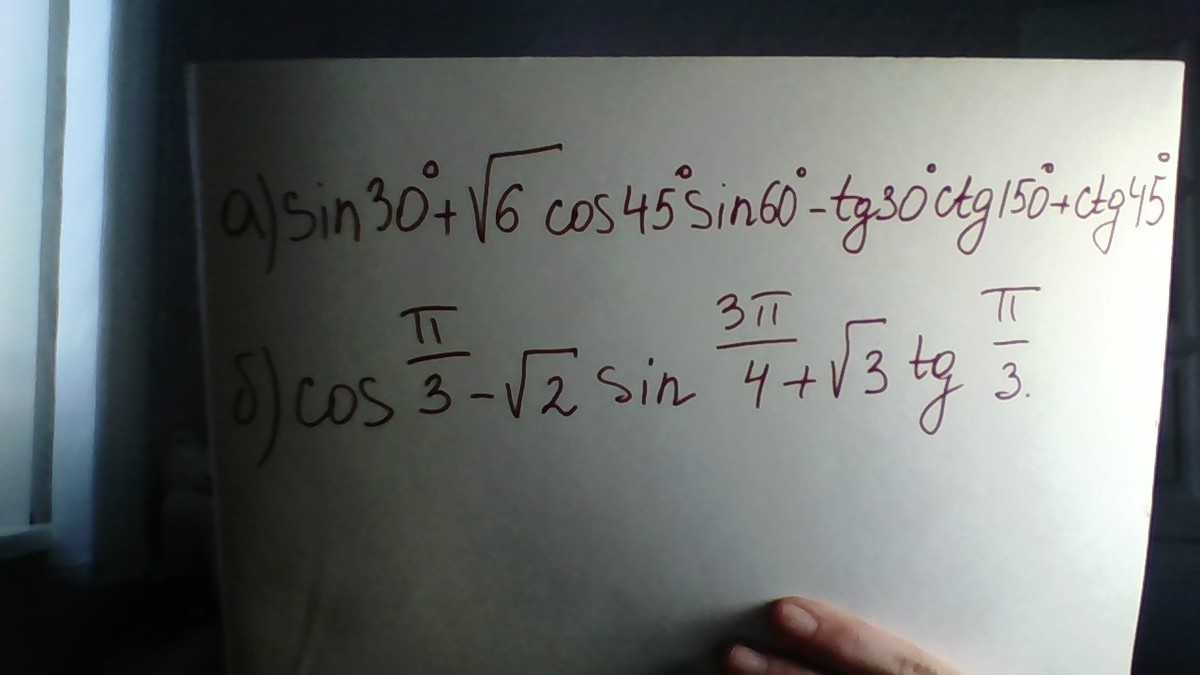 а) sin30° + √6 cos45° sin60° - tg30° ctg150° + ctg45°
б) cos π/3 - √2 sin 3π/4 + √3 tg π/3.